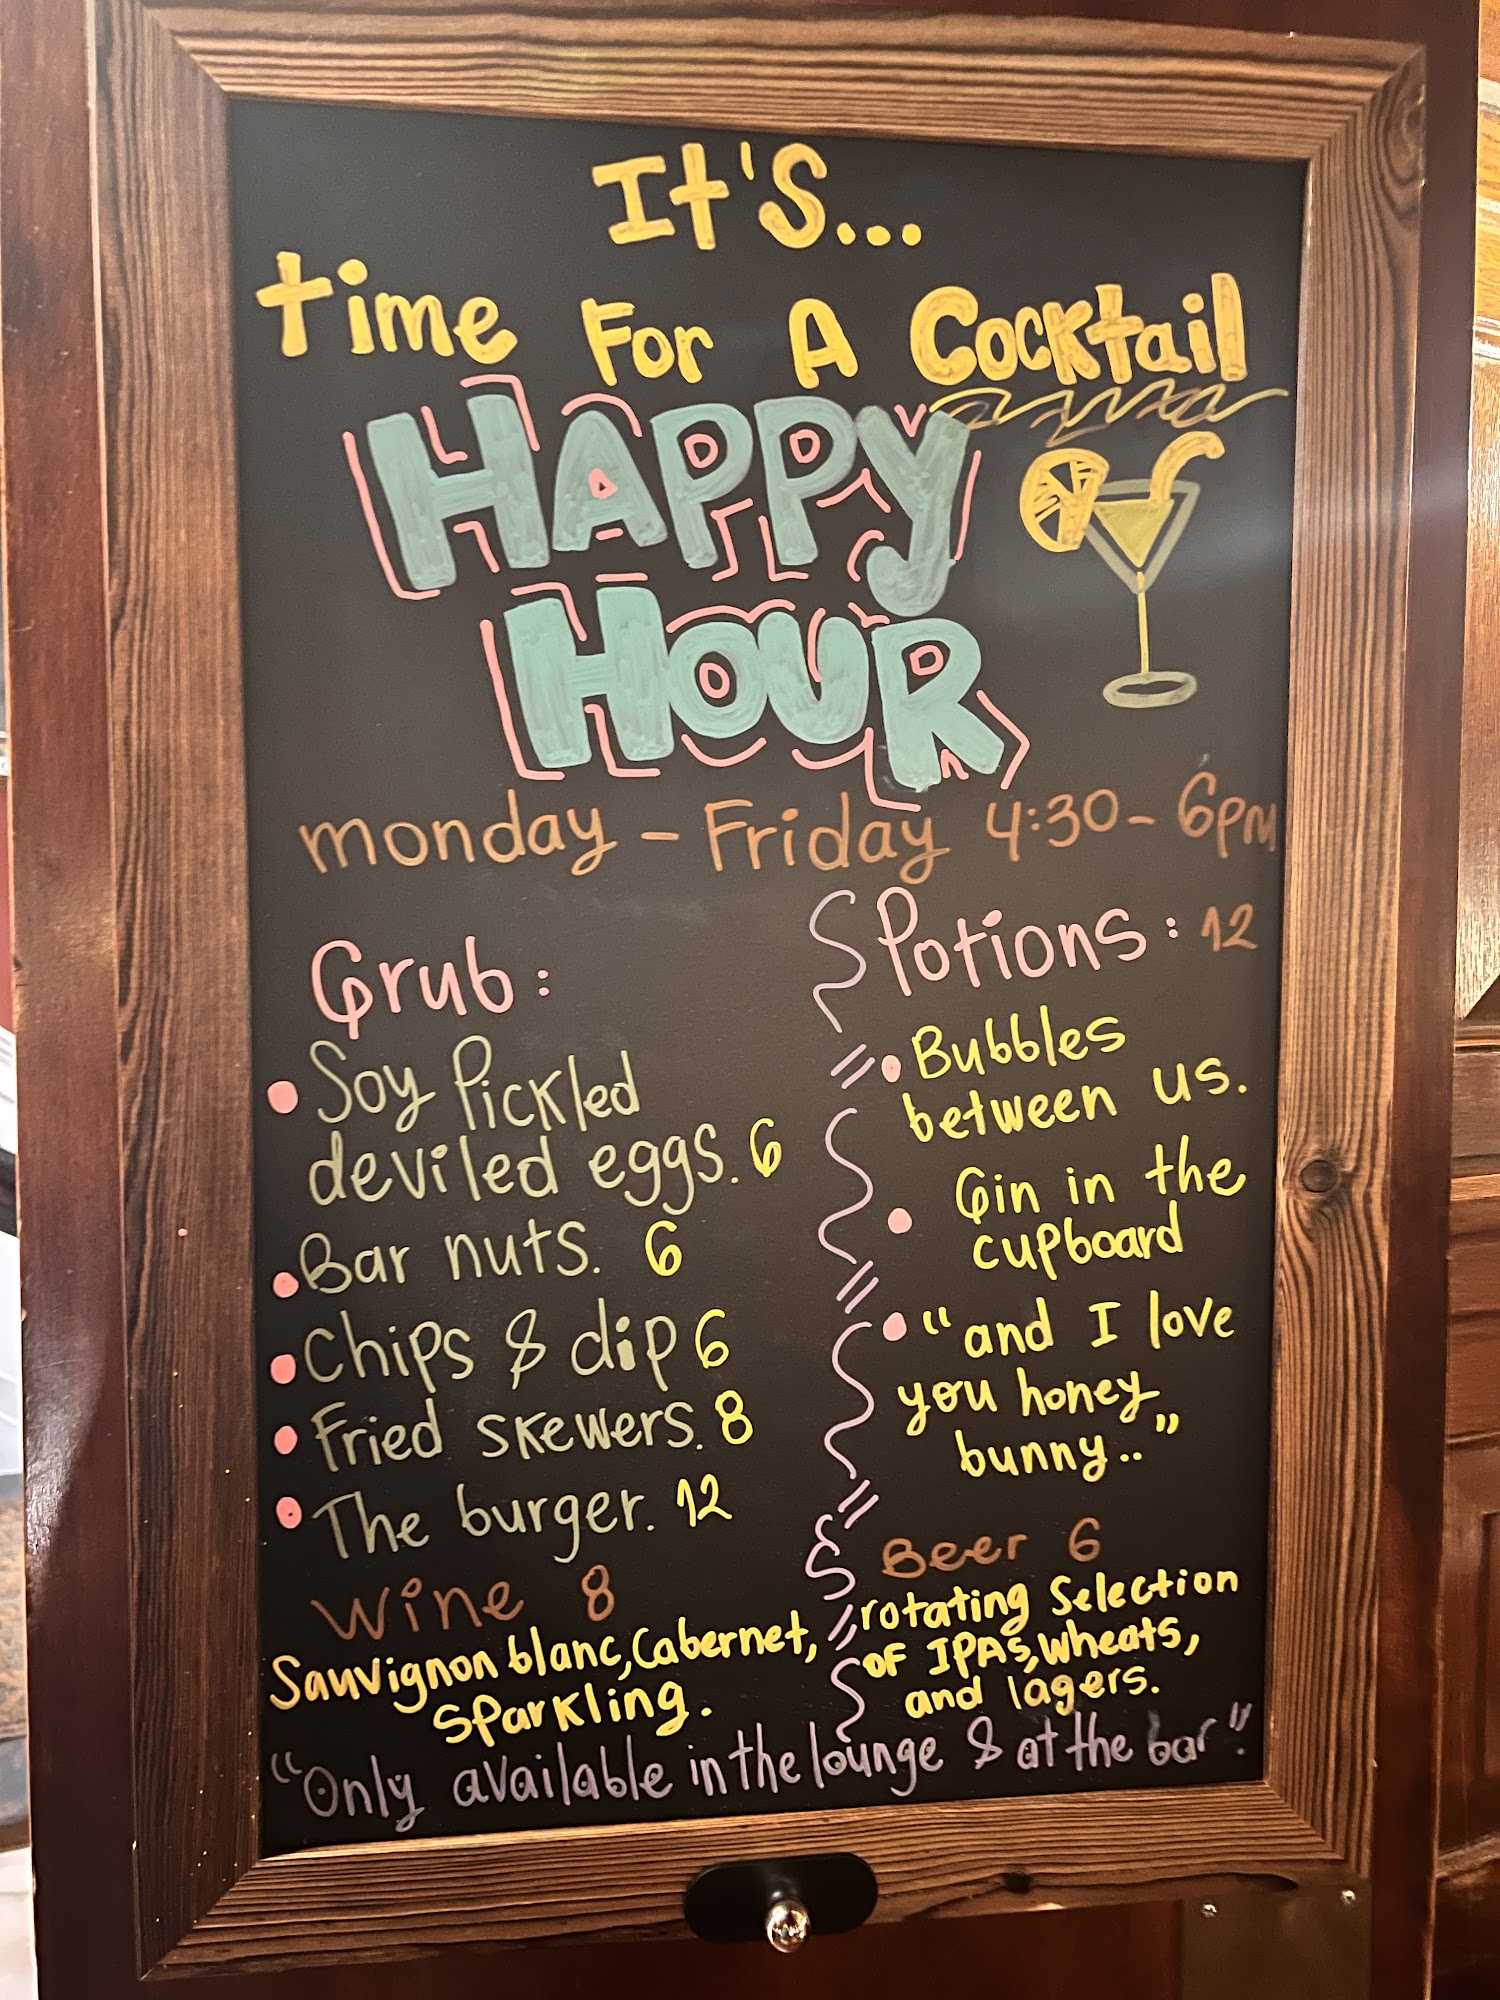 It's...
time For A Cocktail
HAPPY
HOUR
monday - Friday 4:30- 6pm
Grub:
Soy Pickled
deviled eggs. 6
Bar nuts. 6
Chips & dip 6
Fried skewers. 8
The burger. 12
Wine 8
Sauvignon blanc, Cabernet,
Sparkling.
Potions: 12
Bubbles
between us.
Gin in the
cupboard
"and I love
you honey
bunny.."
Beer 6
rotating Selection
of IPAs, wheats,
and lagers.
"Only available in the lounge & at the bar".